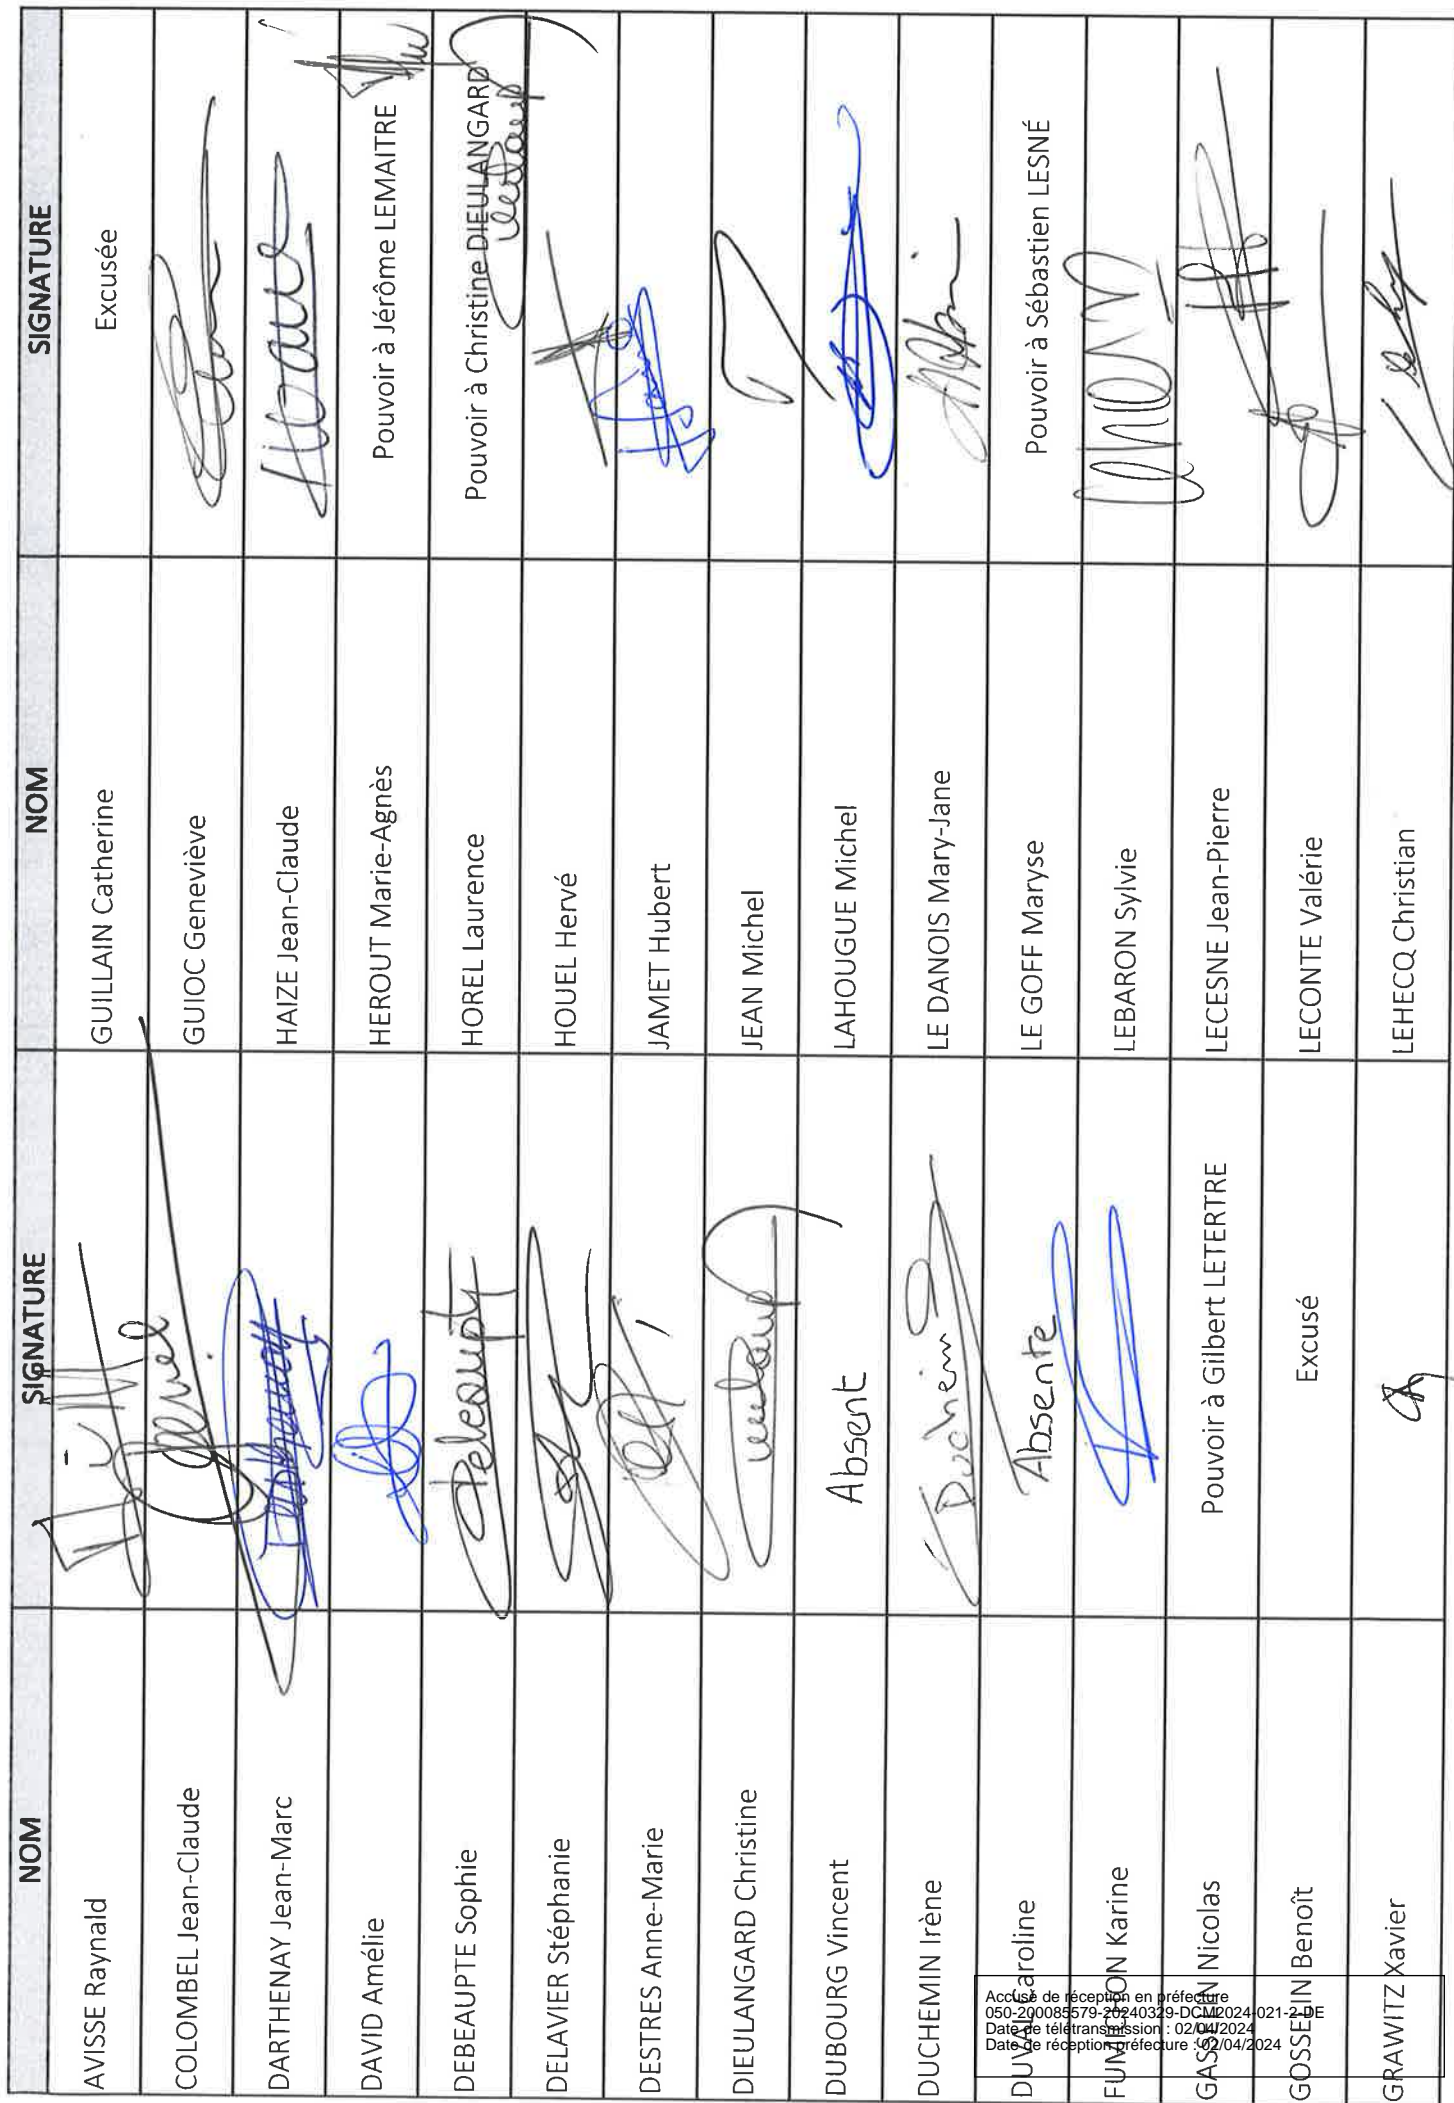 NOM SIGNATURE NOM SIGNATURE
AVISSE Raynald GUILLAIN Catherine Excusée
COLOMBEL Jean-Claude GUIOC Geneviève
DARTHENAY Jean-Marc HAIZE Jean-Claude
DAVID Amélie HEROUT Marie-Agnès Pouvoir à Jérôme LEMAITRE
DEBEAUPTE Sophie HOREL Laurence Pouvoir à Christine DIEULANGARD
DELAVIER Stéphanie HOUEL Hervé
DESTRES Anne-Marie JAMET Hubert
DIEULANGARD Christine JEAN Michel
DUBOURG Vincent Absent LAHOUGUE Michel
DUCHEMIN Irène LE DANOIS Mary-Jane
DUVAL Caroline Absente LE GOFF Maryse Pouvoir à Sébastien LESNÉ
FUMICHON Karine LEBARON Sylvie
GASSELIN Nicolas Pouvoir à Gilbert LETERTRE LECESNE Jean-Pierre
GOSSELIN Benoît Excusé LECONTE Valérie
GRAWITZ Xavier LEHECQ Christian
Accusé de réception en préfecture
050-200085579-20240329-DCM2024-021-2-DE
Date de télétransmission : 02/04/2024
Date de réception préfecture : 02/04/2024